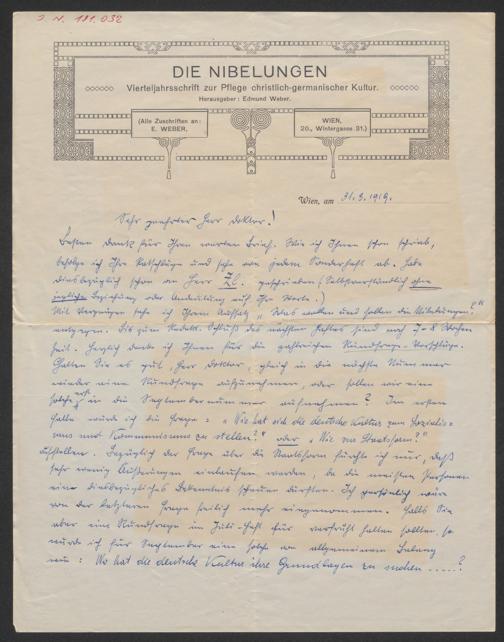 J. N. 181.032
DIE NIBELUNGEN
Vierteljahrsschrift zur Pflege christlich-germanischer Kultur.
Herausgeber: Edmund Weber.
(Alle Zuschriften an:
E. WEBER,
WIEN,
20., Wintergasse 31.)
Wien, am 31. 3. 1919.
Sehr geehrter Herr Doktor!
Besten Dank für Ihren werten Brief. Wie ich Ihnen schon schrieb,
befolge ich Ihre Ratschläge und sehe von jedem Sonderheft ab. Habe
diesbezüglich schon an Herr geschrieben (Selbstverständlich ohne
jegliche Beziehung oder Andeutung auf Ihre Worte.)
Mit Vergnügen sehe ich Ihrem Aufsatz „Was wollen und sollen die Nibelungen?"
entgegen. Bis zum Redakt. Schluß des nächsten Heftes sind noch 7-8 Wochen
Zeit. Herzlich danke ich Ihnen für die zahlreichen Rundfrage-Vorschläge.
Halten Sie es gut, Herr Doktor, gleich in die nächste Nummer
wieder eine Rundfrage aufzunehmen, oder sollen wir eine
solche erst in die Septembernummer aufnehmen? Im ersten
Falle würde ich die Frage: „Wie hat sich die deutsche Kultur zum Sozialis=
mus und Kommunismus zu stellen?" oder „Die Staatsform?"
aufstellen. Bezüglich der Frage über die Staatsform fürchte ich nur, daß
sehr wenig Äußerungen einlaufen werden, da die meisten Personen
ein diesbezügliches Bekenntnis scheuen dürften. Ich persönlich wäre
von der letzteren Frage freilich mehr eingenommen. Falls Sie
aber eine Rundfrage im Juli-Heft für verfrüht halten sollten, so
würde ich für September eine solche von allgemeinem Belang
: Wo hat die deutsche Kultur ihre Grundlagen zu suchen .....?